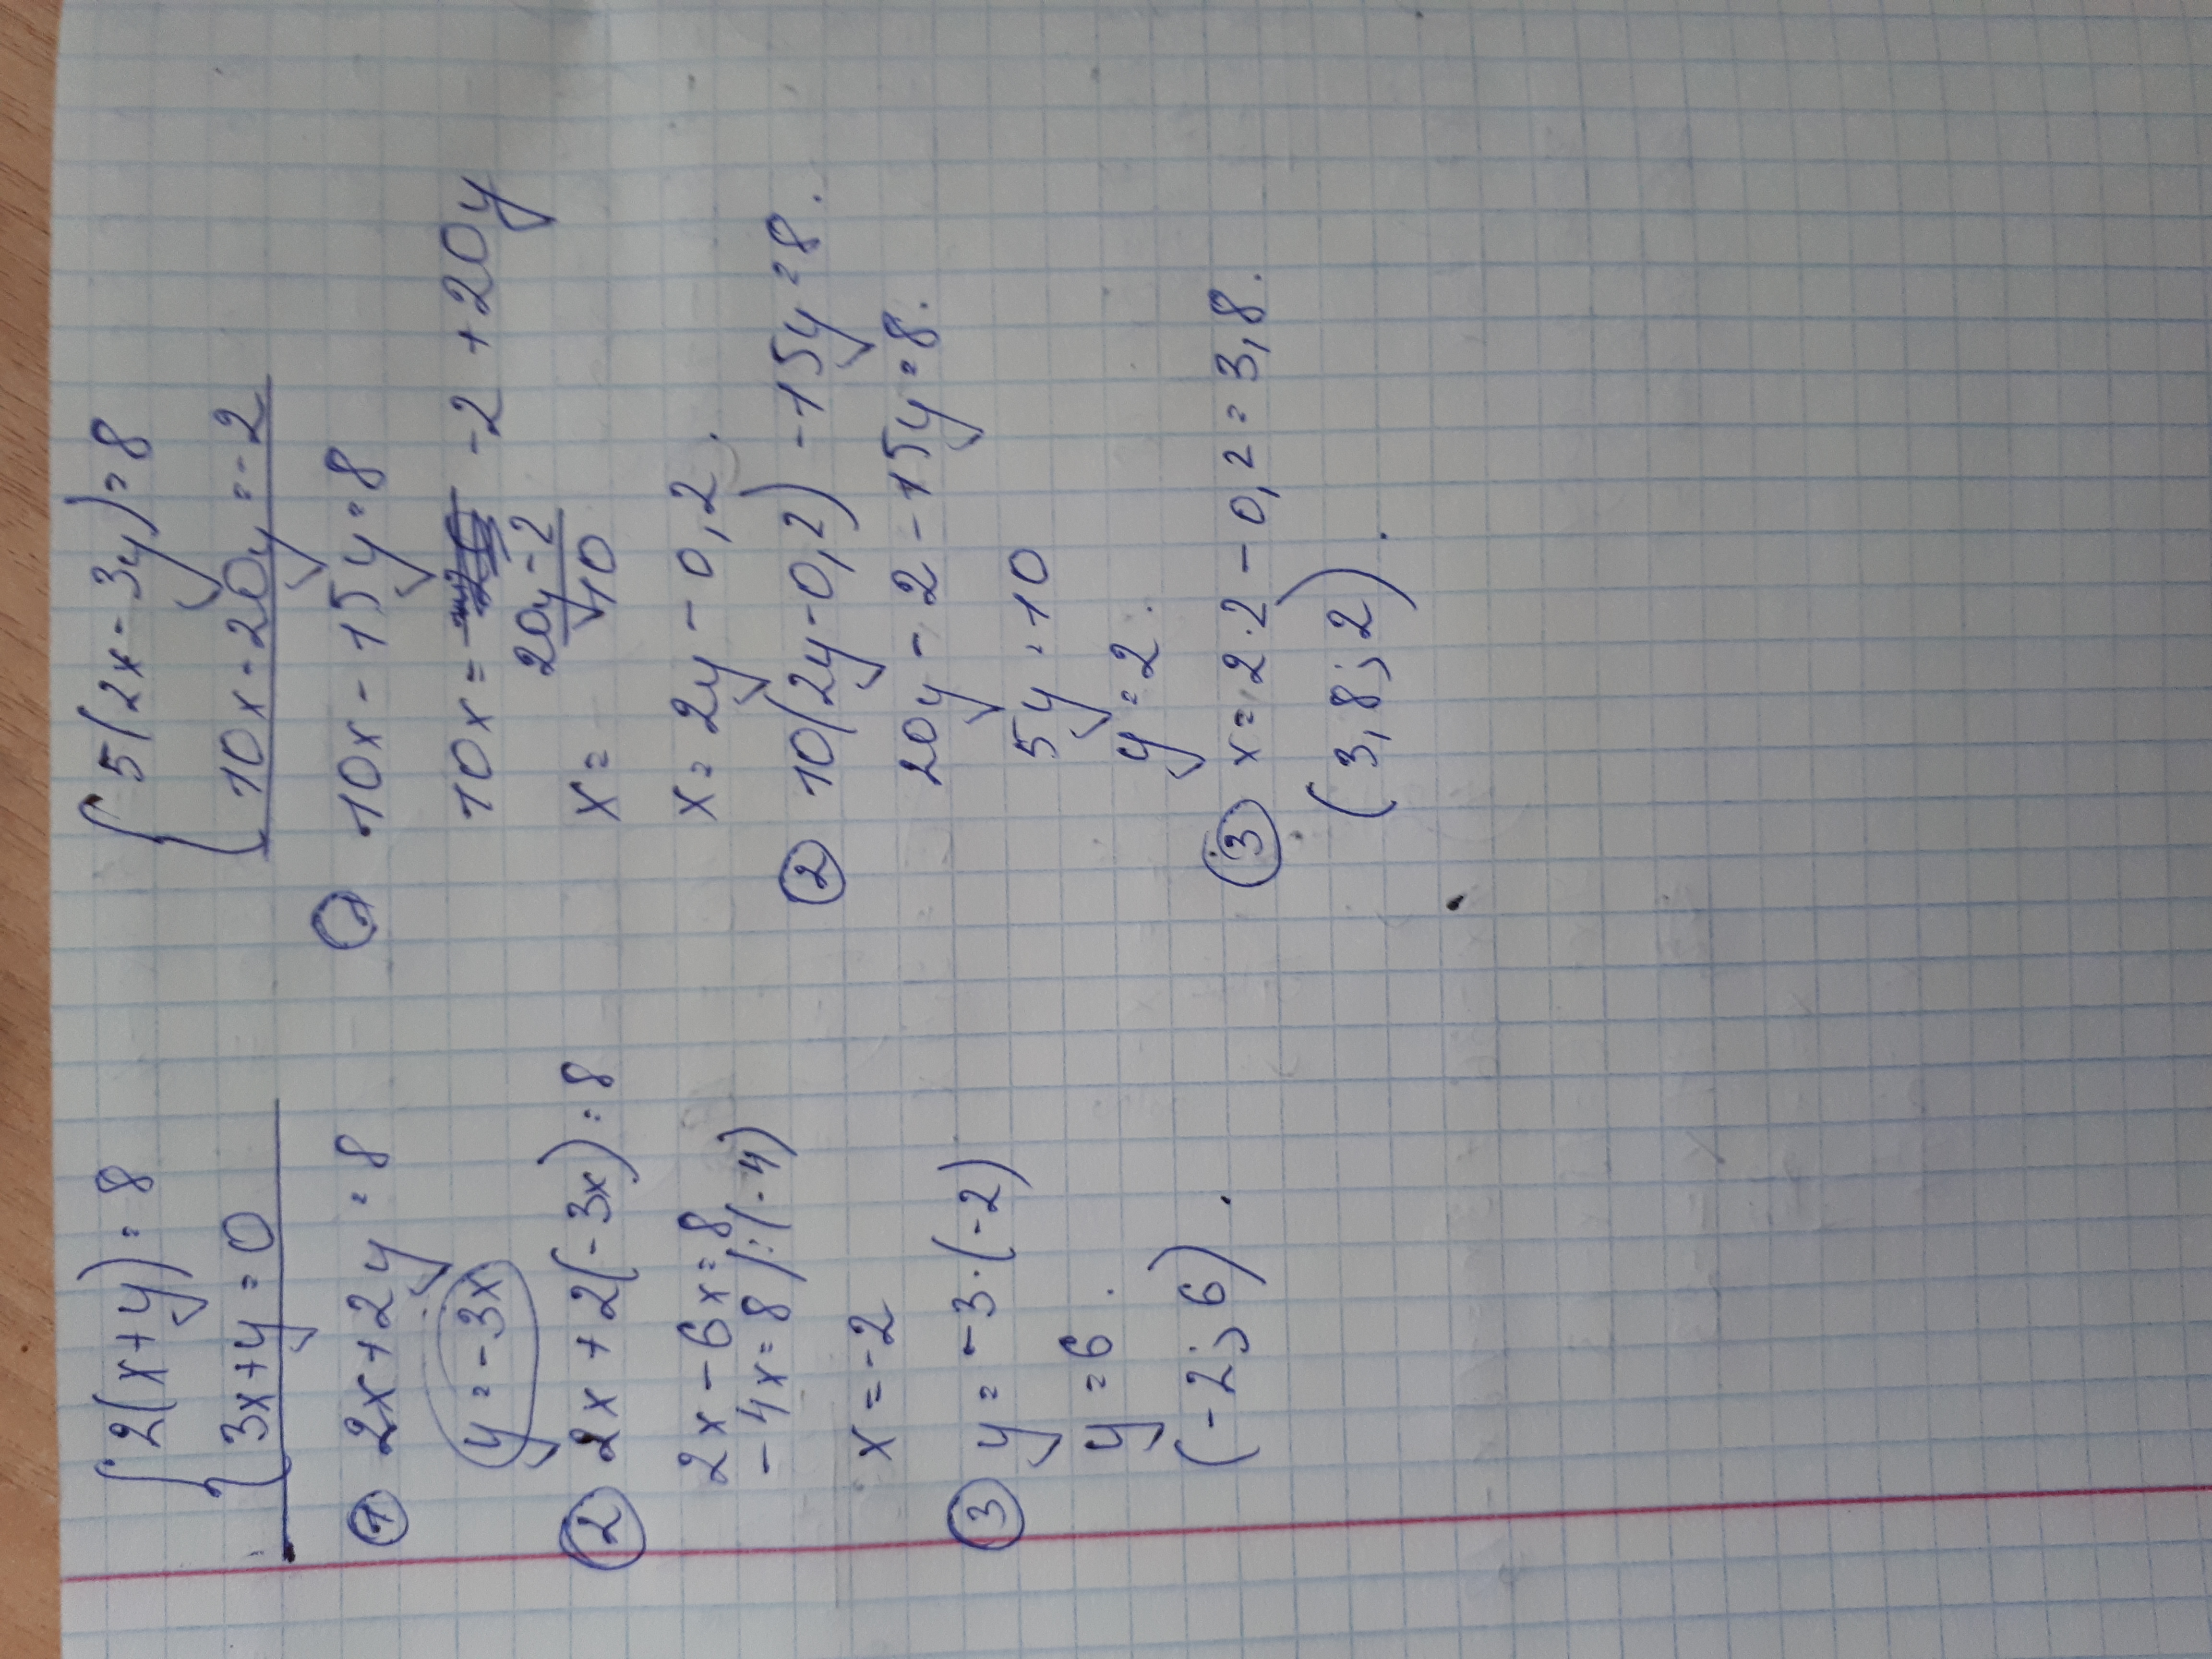 { 2(x+y)=8
{ 3x+y=0
① 2x+2y=8
y=-3x
② 2x+2(-3x)=8
2x-6x=8
-4x=8 /:(-4)
x=-2
③ y=-3·(-2)
y=6.
(-2;6).
{ 5(2x-3y)=8
10x-20y=-2
① 10x-15y=8
10x= -2+20y
x= 20y-2/10
x=2y-0,2.
② 10(2y-0,2)-15y=8.
20y-2-15y=8.
5y=10
y=2.
③ x=2·2-0,2=3,8.
(3,8;2).